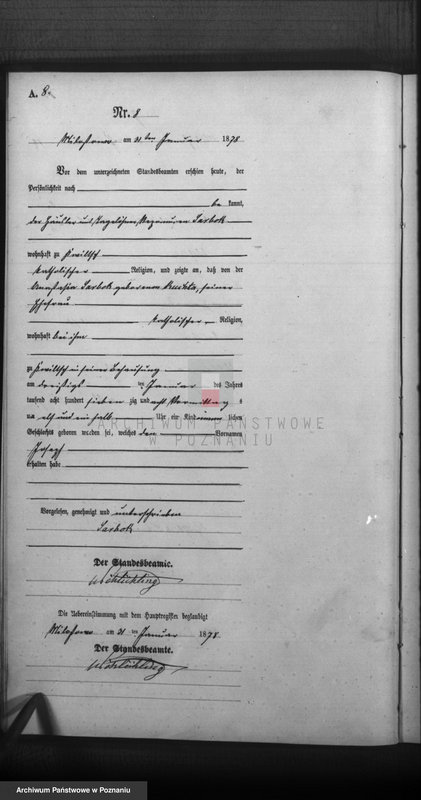 A. 8.
Nr. 8
am 31 ten Januar 1878
Vor dem unterzeichneten Standesbeamten erschien heute, der
Persönlichkeit nach
be kannt,
der Häusler und Tagelöhner Sarbok
wohnhaft zu
katholischer Religion, und zeigte an, daß von der
Anastasia Sarbok geborenen seiner
Ehefrau
katholischer Religion,
wohnhaft bei ihm
zu in seiner Behausung
am dreißigsten Januar des Jahres
tausend acht hundert sieben zig und acht Vormittag s
um elf und ein halb Uhr ein Kind männ lichen
Geschlechts geboren worden sei, welches den Vornamen
Joseph
erhalten habe
Vorgelesen, genehmigt und unterschrieben
Sarbok
Der Standesbeamte.
Die Uebereinstimmung mit dem Hauptregister beglaubigt
am 31 ten Januar 1878.
Der Standesbeamte.
ARCHIWUM PAŃSTWOWE
W POZNANIU
Archiwum Państwowe w Poznaniu